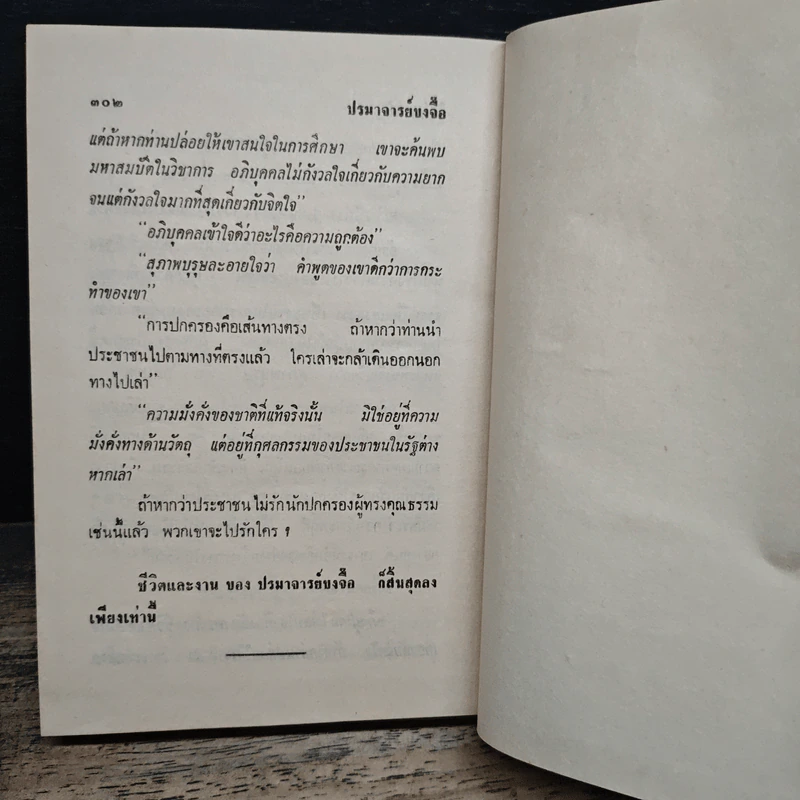 ๓๐๒ ปรมาจารย์ขงจื๊อ
แต่ถ้าหากท่านปล่อยให้เขาสนใจในการศึกษา เขาจะค้นพบ
มหาสมบัติในวิชาการ อภิบุคคลไม่กังวลใจเกี่ยวกับความยาก
จนแต่กังวลใจมากที่สุดเกี่ยวกับจิตใจ”
“อภิบุคคลเข้าใจดีว่าอะไรคือความถูกต้อง”
“สุภาพบุรุษละอายใจว่า คำพูดของเขาดีกว่าการกระ
ทำของเขา”
“การปกครองคือเส้นทางตรง ถ้าหากว่าท่านนำ
ประชาชนไปตามทางที่ตรงแล้ว ใครเล่าจะกล้าเดินออกนอก
ทางไปเล่า”
“ความมั่งคั่งของชาติที่แท้จริงนั้น มิใช่อยู่ที่ความ
มั่งคั่งทางด้านวัตถุ แต่อยู่ที่กุศลกรรมของประชาชนในรัฐต่าง
หากเล่า”
ถ้าหากว่าประชาชนไม่รักนักปกครองผู้ทรงคุณธรรม
เช่นนี้แล้ว พวกเขาจะไปรักใคร ?
ชีวิตและงาน ของ ปรมาจารย์ขงจื๊อ ก็สิ้นสุดลง
เพียงเท่านี้